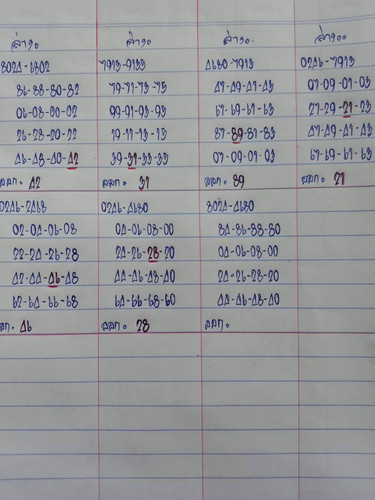 ล่าง๐
8024-6802
86-88-80-82
06-08-00-02
26-28-20-22
46-48-40-42
ออก. 42
ล่าง๐
7913-9135
79-71-73-75
99-91-93-95
19-11-13-15
39-31-33-35
ออก. 31
ล่าง๐.
4680-7913
47-49-41-43
67-69-61-63
87-89-81-83
07-09-01-03
ออก. 89
ล่าง๐๐
0246-7913
07-09-01-03
27-29-21-23
47-49-41-43
67-69-61-63
ออก. 21
0246-2468
02-04-06-08
22-24-26-28
42-44-46-48
62-64-66-68
ออก. 46
0246-4680
04-06-08-00
24-26-28-20
44-46-48-40
64-66-68-60
ออก. 28
8024-4680
84-86-88-80
04-06-08-00
24-26-28-20
44-46-48-40
ออก.